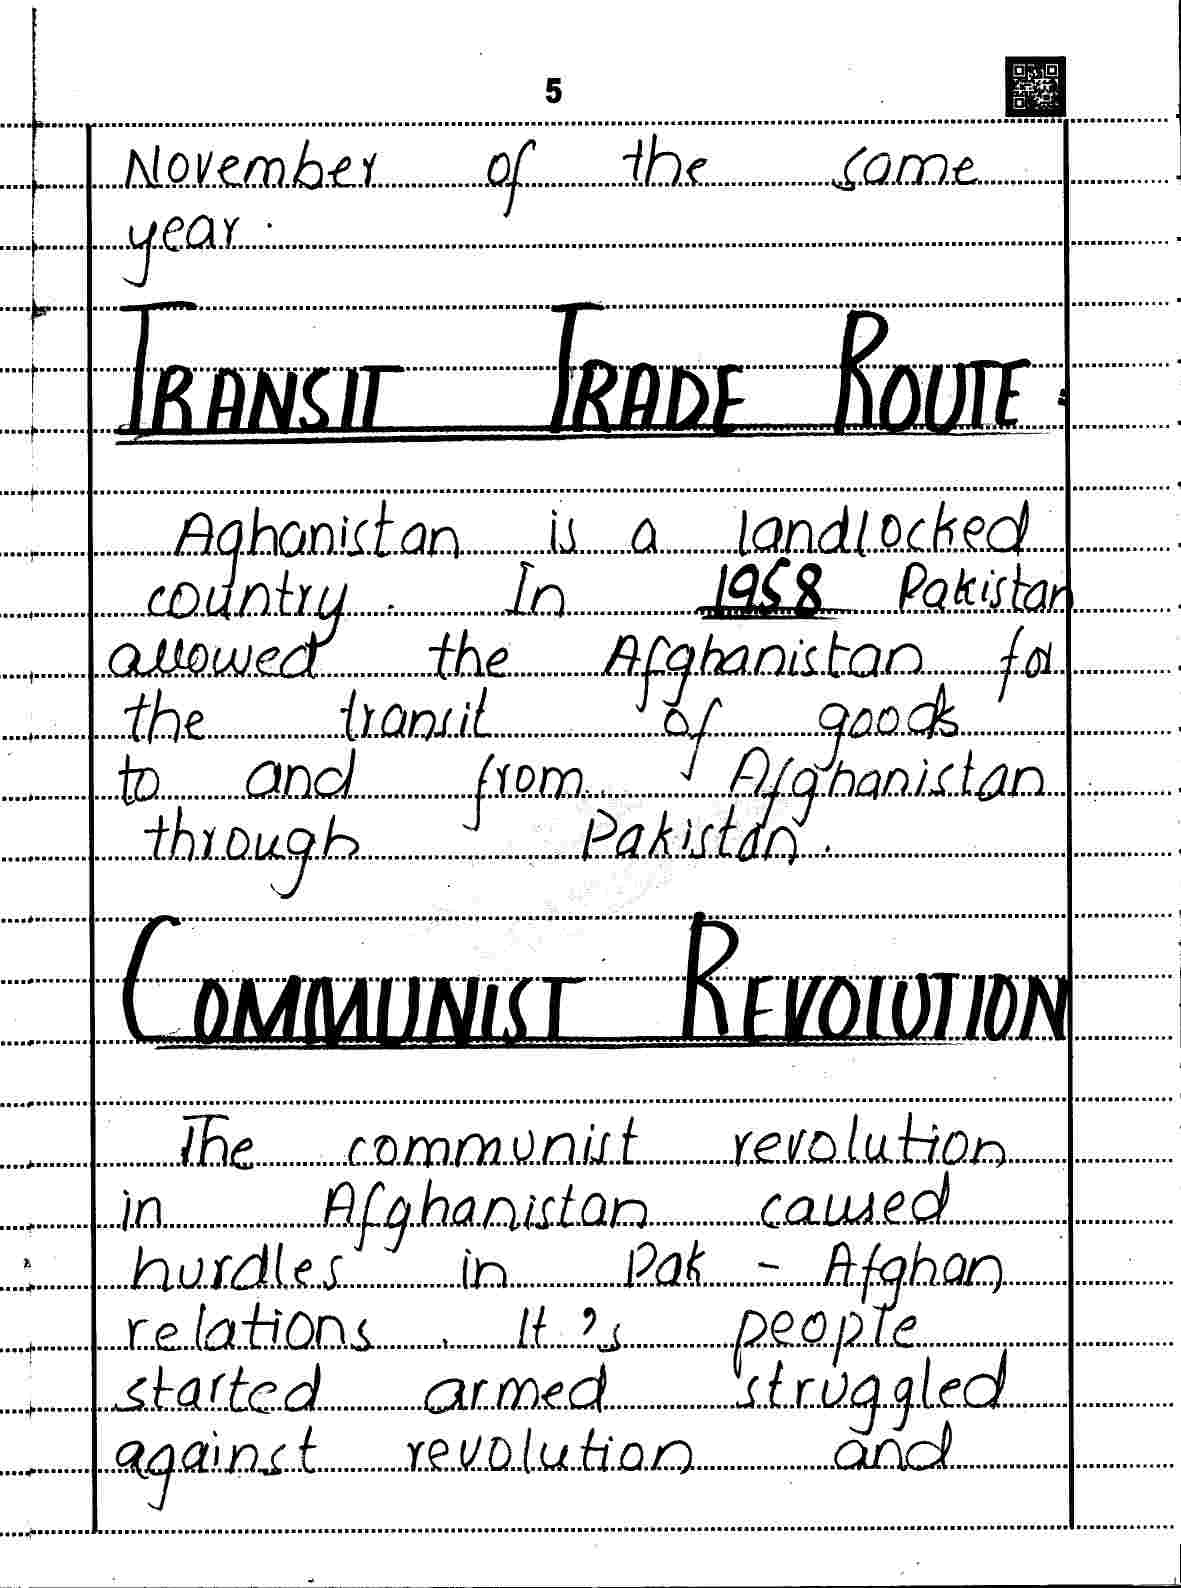 5
November of the same
year.
TRANSIT TRADE ROUTE:
Aghanistan is a landlocked
country. In 1958 Pakistan
allowed the Afghanistan for
the transit of goods
to and from Afghanistan
through Pakistan.
COMMUNIST REVOLUTION
The communist revolution
in Afghanistan caused
hurdles in Pak - Afghan
relations. It's people
started armed struggled
against revolution and